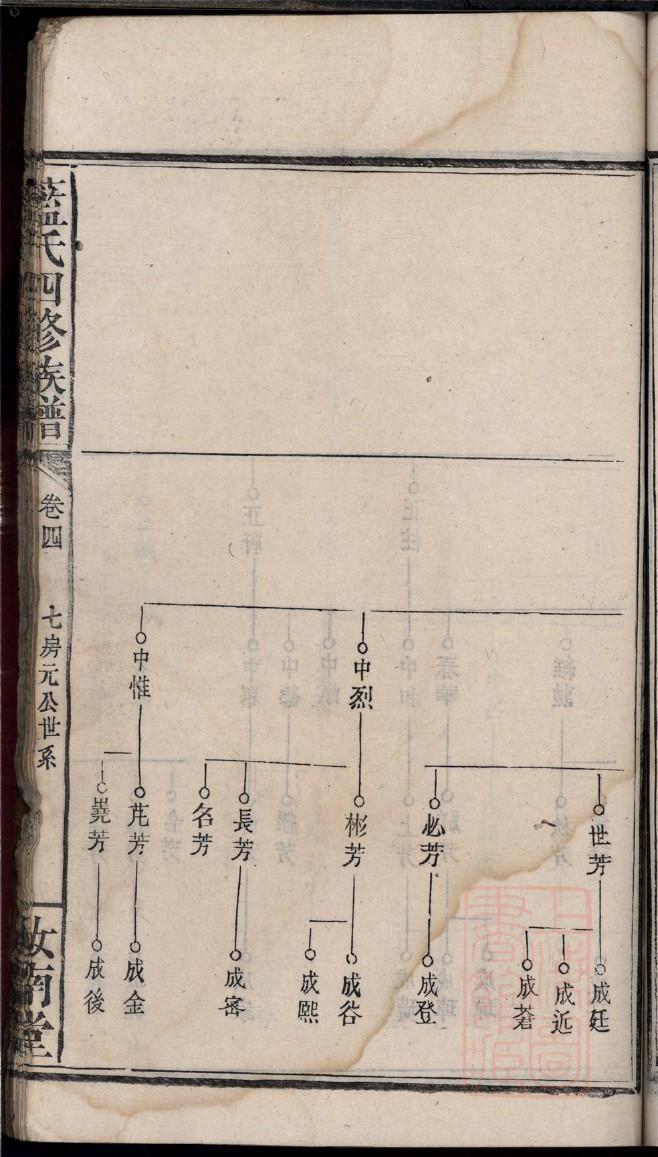 藍氏四修族譜
卷四
七房元公世系
汝南堂
中烈
中惟
世芳
必芳
彬芳
長芳
名芳
芃芳
嶤芳
成廷
成近
成蒼
成登
成谷
成熙
成密
成金
成後